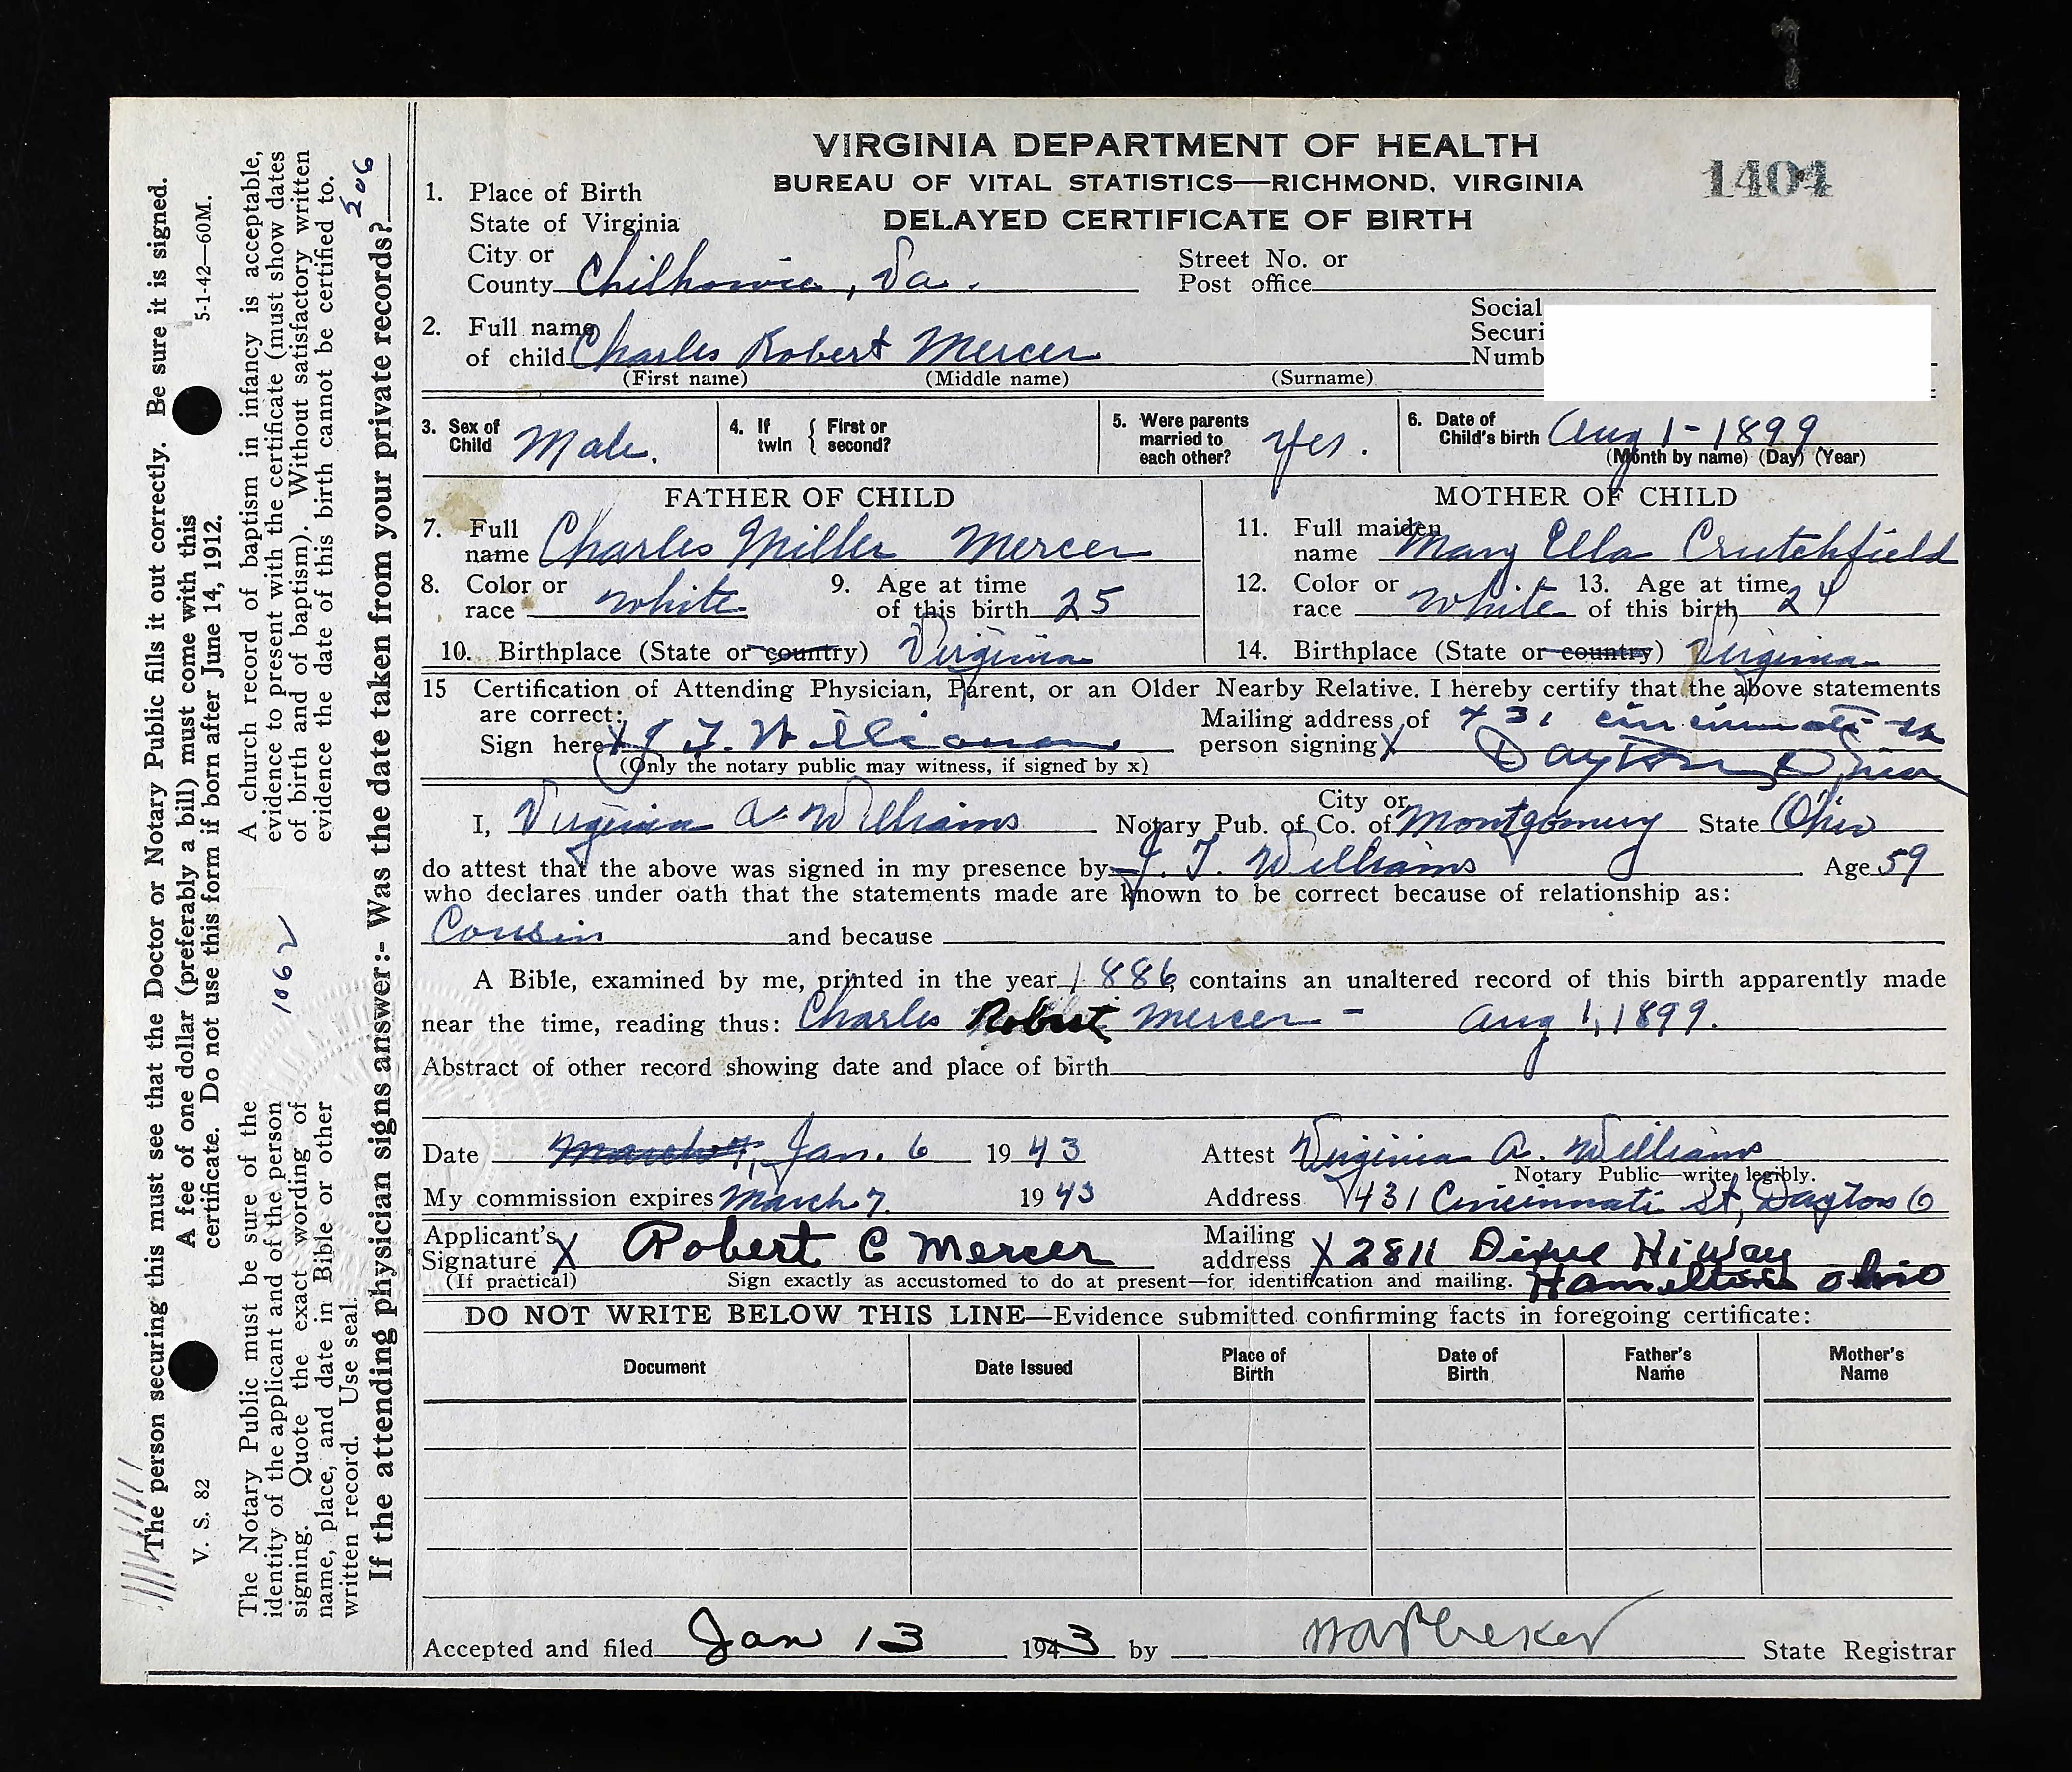 The person securing this must see that the Doctor or Notary Public fills it out correctly. Be sure it is signed.
A fee of one dollar (preferably a bill) must come with this
certificate. Do not use this form if born after June 14, 1912.
V. S. 82
5-1-42—60M.
The Notary Public must be sure of the
identity of the applicant and of the person
signing. Quote the exact wording of
name, place, and date in Bible or other
written record. Use seal.
1062
A church record of baptism in infancy is acceptable,
evidence to present with the certificate (must show dates
of birth and of baptism). Without satisfactory written
evidence the date of this birth cannot be certified to.
If the attending physician signs answer:- Was the date taken from your private records?
206
VIRGINIA DEPARTMENT OF HEALTH
BUREAU OF VITAL STATISTICS—RICHMOND, VIRGINIA
DELAYED CERTIFICATE OF BIRTH
1404
1. Place of Birth
State of Virginia
City or
County Chilhowie, Va.
Street No. or
Post office
2. Full name
of child Charles Robert Mercer
(First name) (Middle name) (Surname)
Social
Securi
Numb
3. Sex of
Child Male.
4. If twin { First or second?
5. Were parents
married to
each other? Yes.
6. Date of
Child's birth Aug 1-1899
(Month by name) (Day) (Year)
FATHER OF CHILD
7. Full
name Charles Miller Mercer
8. Color or
race White
9. Age at time
of this birth 25
10. Birthplace (State or country) Virginia
MOTHER OF CHILD
11. Full maiden
name Mary Ella Crutchfield
12. Color or
race White
13. Age at time
of this birth 24
14. Birthplace (State or country) Virginia
15 Certification of Attending Physician, Parent, or an Older Nearby Relative. I hereby certify that the above statements
are correct:
Sign here X J T. Williams
(Only the notary public may witness, if signed by x)
Mailing address of
person signing X 431 Cincinnati St
Dayton Ohio
I, Virginia A. Williams Notary Pub. of City or Co. of Montgomery State Ohio
do attest that the above was signed in my presence by J. T. Williams. Age 59
who declares under oath that the statements made are known to be correct because of relationship as:
Cousin and because
A Bible, examined by me, printed in the year 1886, contains an unaltered record of this birth apparently made
near the time, reading thus: Charles Robert Mercer - Aug 1, 1899.
Abstract of other record showing date and place of birth
Date March 7, Jan. 6 1943
Attest Virginia A. Williams
Notary Public—write legibly.
My commission expires March 7. 1943
Address 431 Cincinnati St, Dayton O
Applicant's
Signature X Robert C Mercer
(If practical)
Mailing
address X 2811 Dixie HiWay
Hamilton Ohio
Sign exactly as accustomed to do at present—for identification and mailing.
DO NOT WRITE BELOW THIS LINE—Evidence submitted confirming facts in foregoing certificate:
Document
Date Issued
Place of
Birth
Date of
Birth
Father's
Name
Mother's
Name
Accepted and filed Jan 13 1943 by State Registrar